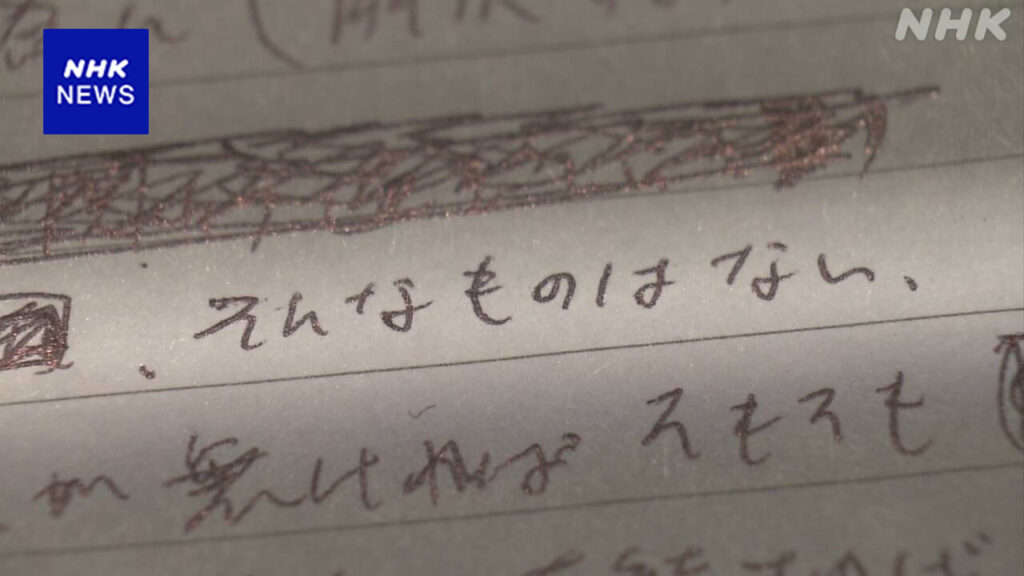 NHK
NHK
NEWS
、そんなものはない、
が無ければそもそも